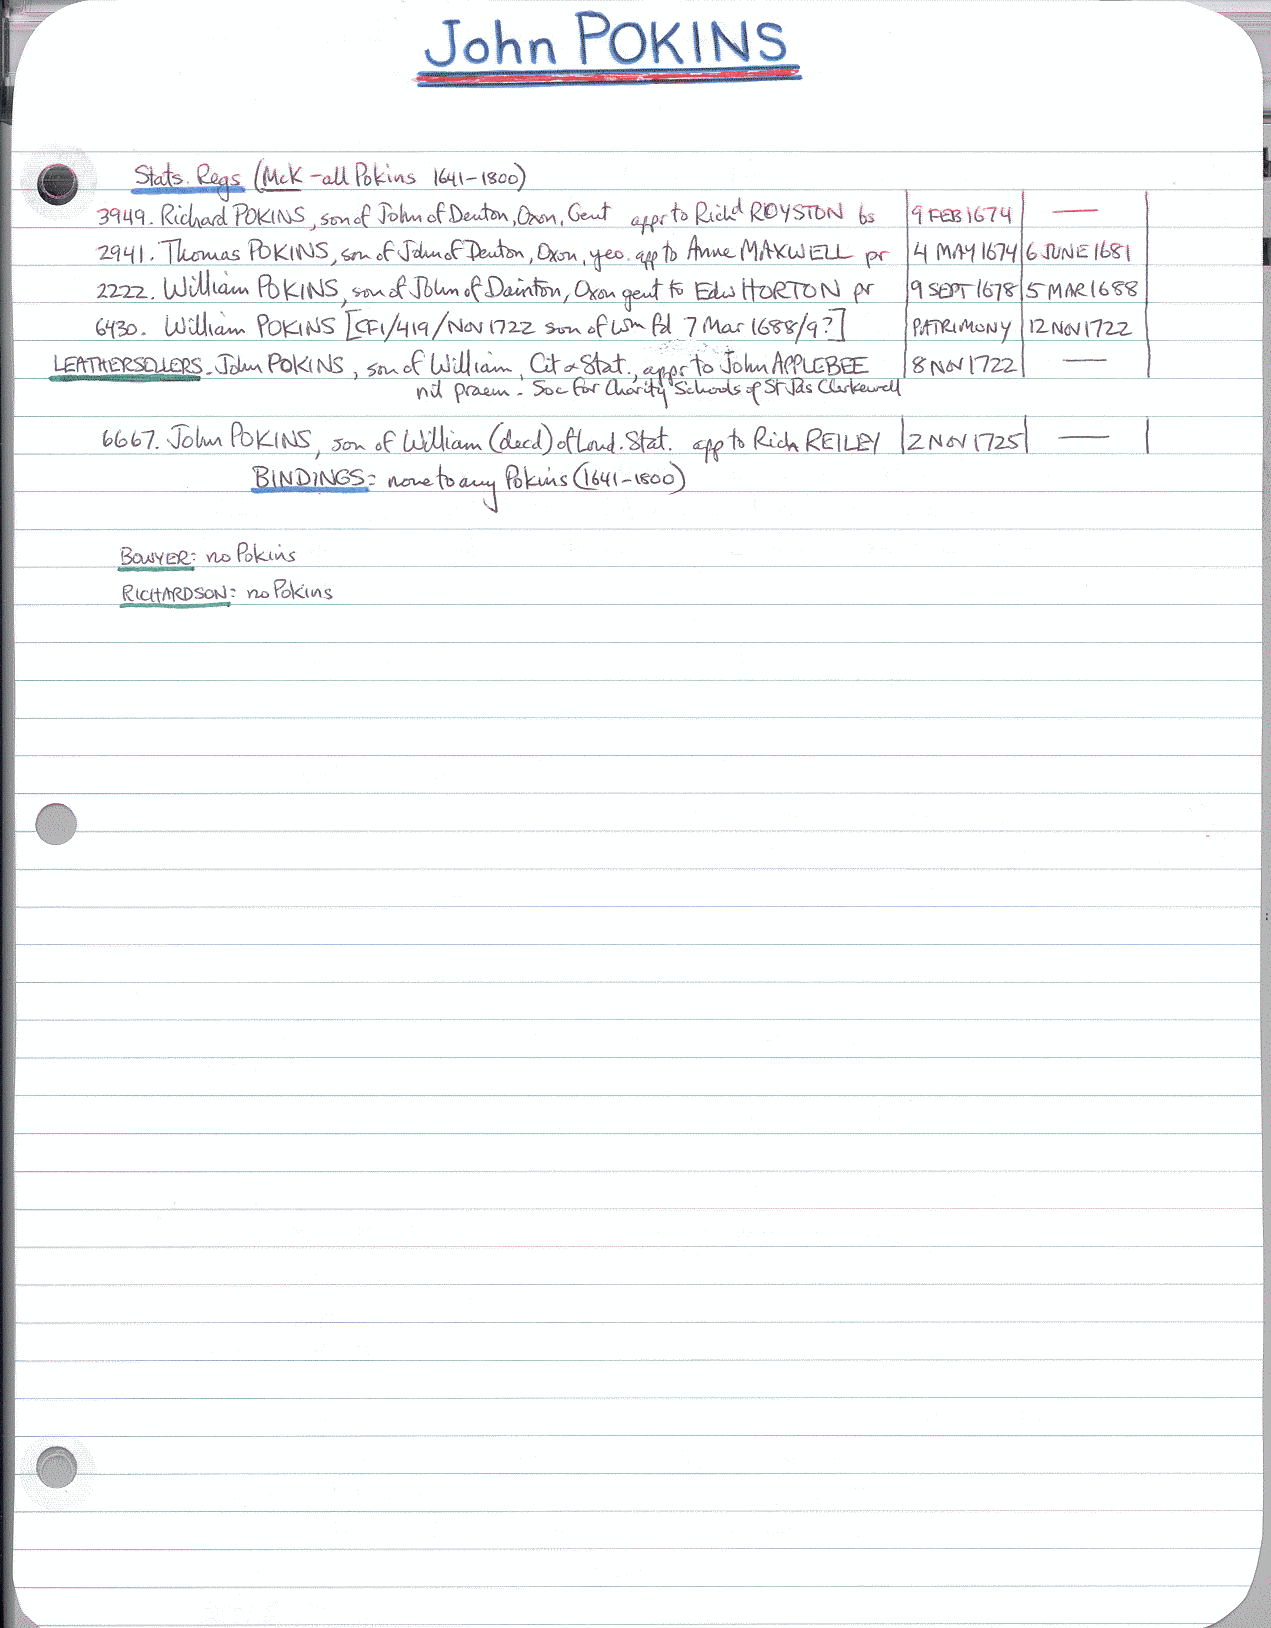 John POKINS
Stats. Regs (McK - all Pokins 1641-1800)
3949. Richard POKINS, son of John of Denton, Oxon, Gent appr to Richd ROYSTON bs 9 FEB 1674 —
2941. Thomas POKINS, son of John of Denton, Oxon, yeo. app to Anne MAXWELL pr 4 MAY 1674 6 JUNE 1681
2222. William POKINS, son of John of Dainton, Oxon gent to Edw HORTON pr 9 SEPT 1678 5 MAR 1688
6430. William POKINS [CF1/419/Nov 1722 son of Wm fd 7 Mar 1688/9?] PATRIMONY 12 NOV 1722
LEATHERSELLERS. John POKINS, son of William, Cit & Stat., appr to John APPLEBEE 8 NOV 1722 —
nil praem - Soc for Charity Schools of St Jas Clerkewell
6667. John POKINS, son of William (decd) of Lond. Stat. app to Rich REILEY 2 NOV 1725 —
BINDINGS: none to any Pokins (1641-1800)
BOWYER: no Pokins
RICHARDSON: no Pokins